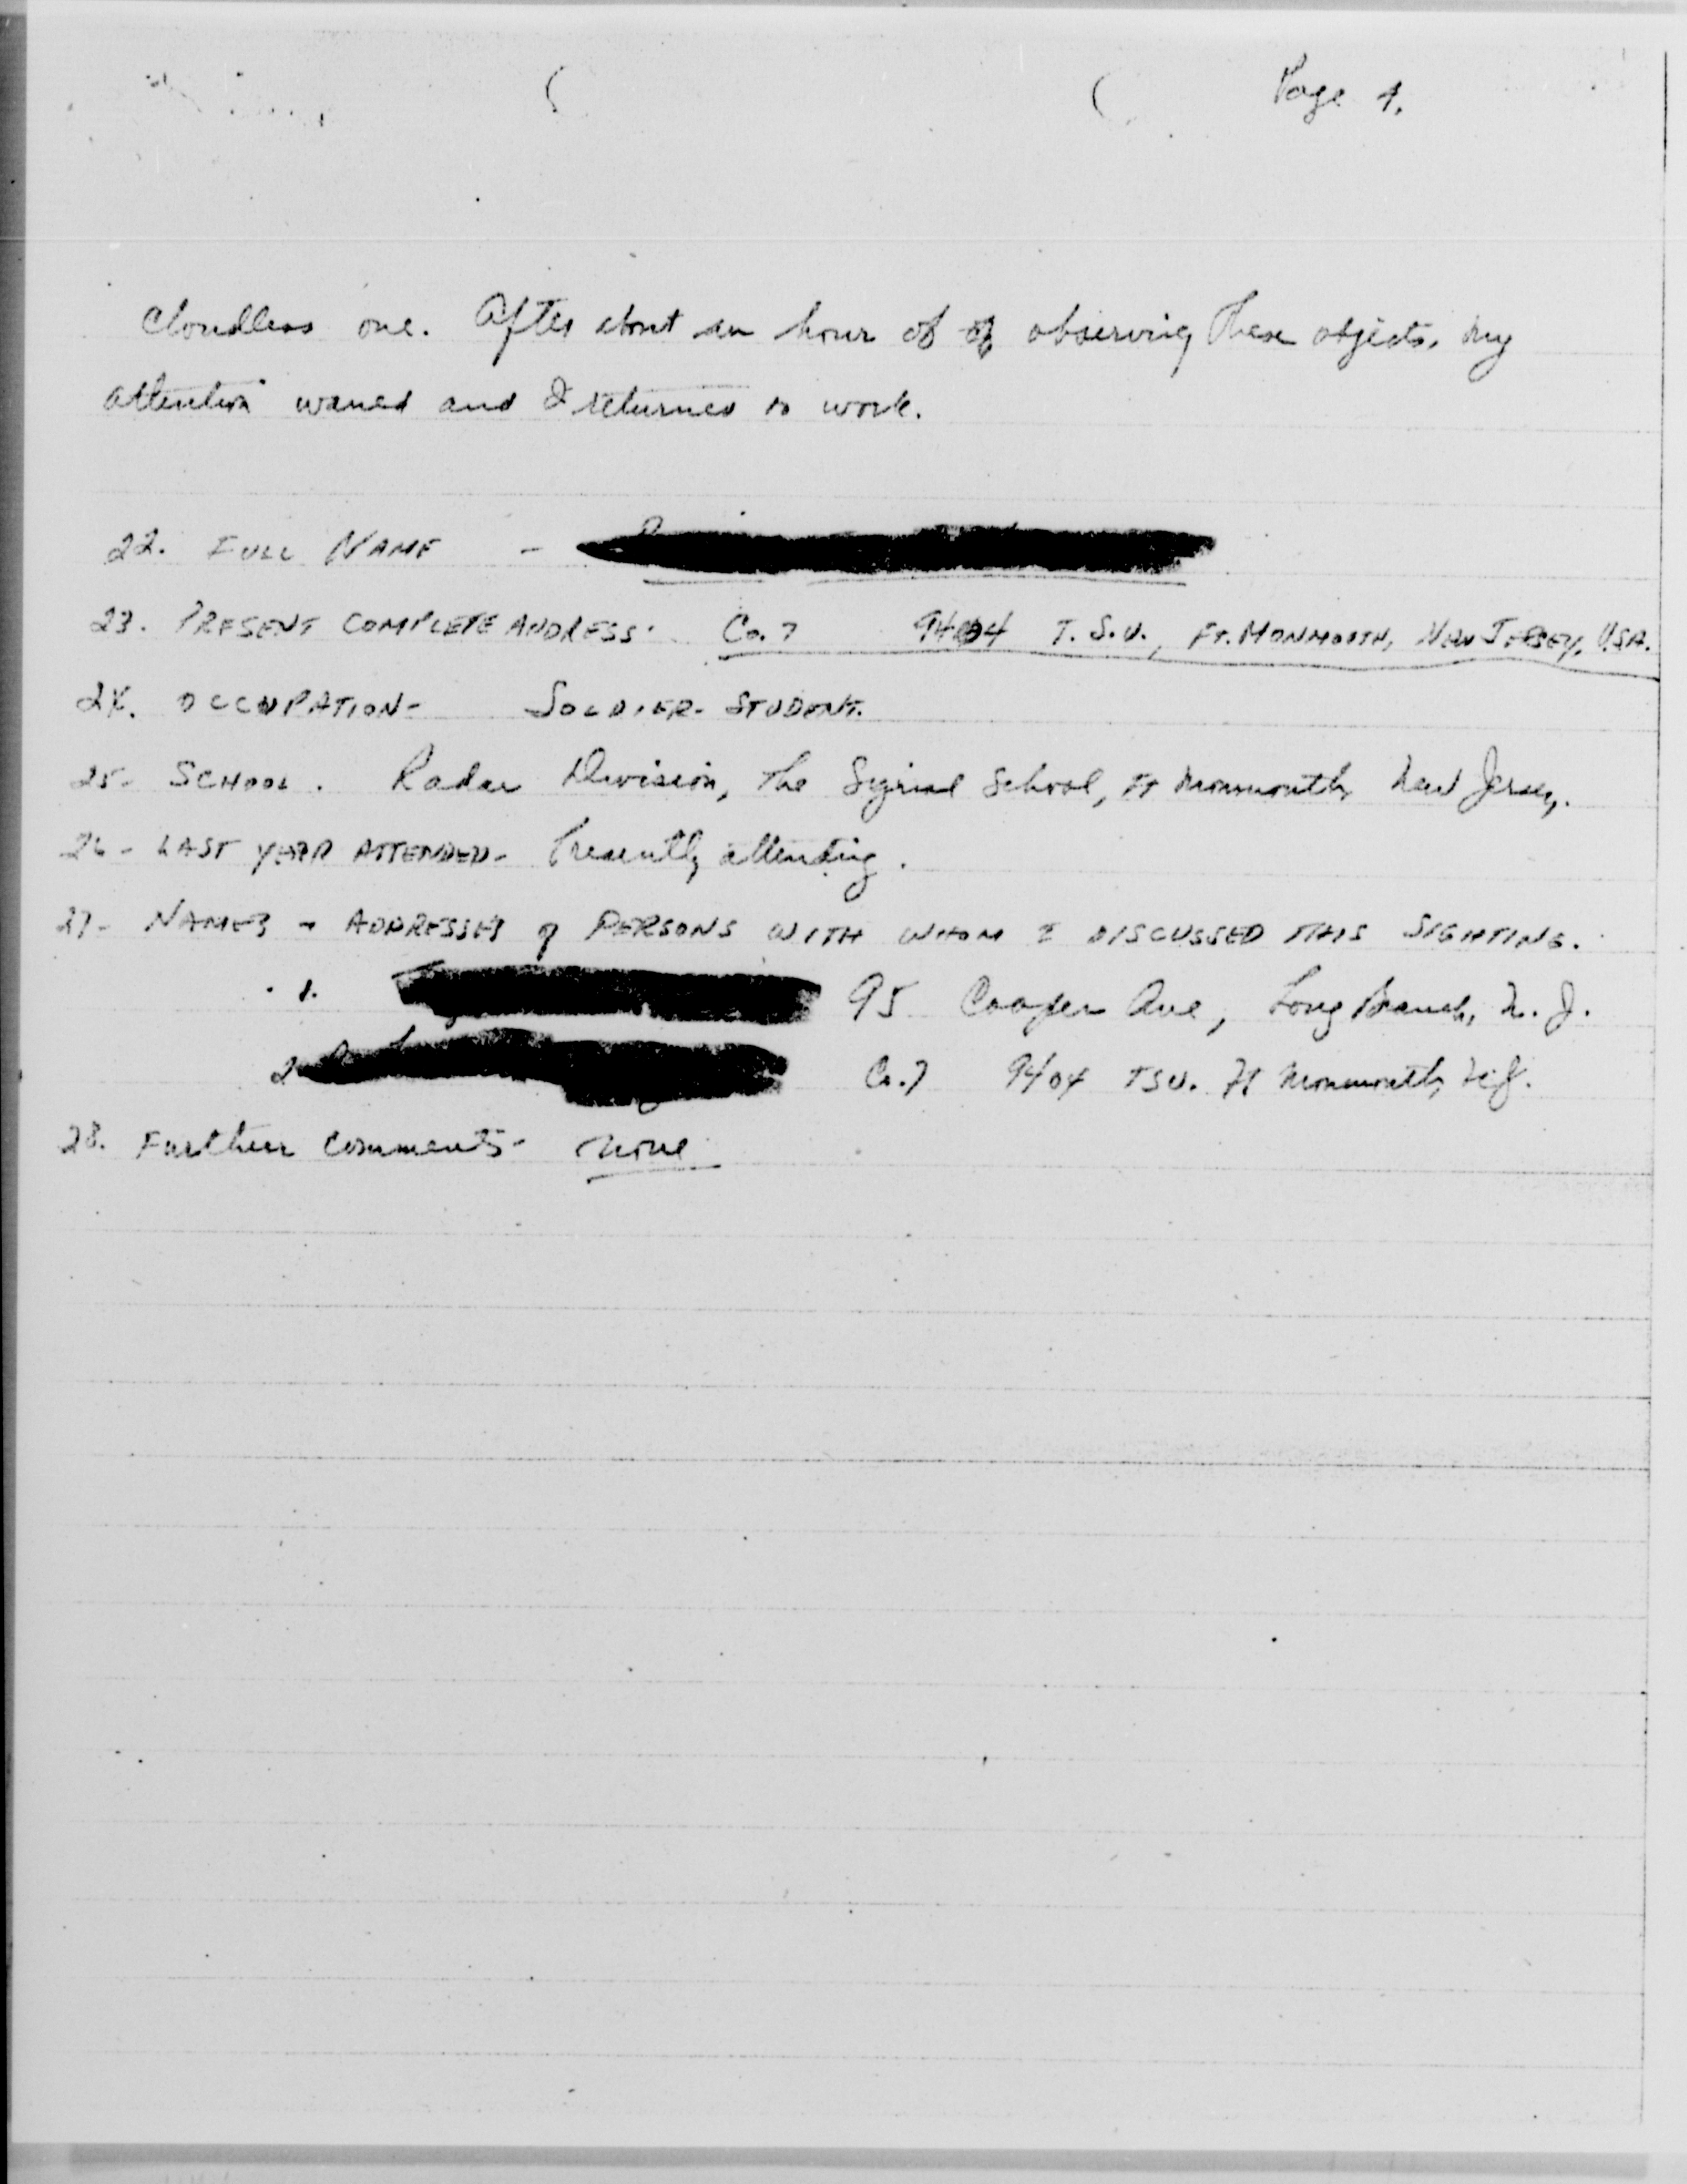 Page 4.
cloudless one. After about an hour of of observing these objects, my
attention waned and I returned to work.
22. FULL NAME -
23. PRESENT COMPLETE ADDRESS. Co. 7 9404 T.S.U., FT. MONMOUTH, NEW JERSEY, USA.
24. OCCUPATION- SOLDIER- STUDENT.
25- SCHOOL. Radar Division, The Signal School, Ft Monmouth, New Jersey.
26- LAST YEAR ATTENDED- Presently attending.
27- NAMES + ADDRESSES of PERSONS WITH WHOM I DISCUSSED THIS SIGHTING.
1. 95 Cooper Ave, Long Branch, N.J.
2 Co. 7 9404 TSU. Ft Monmouth, N.J.
28. Further comments- none